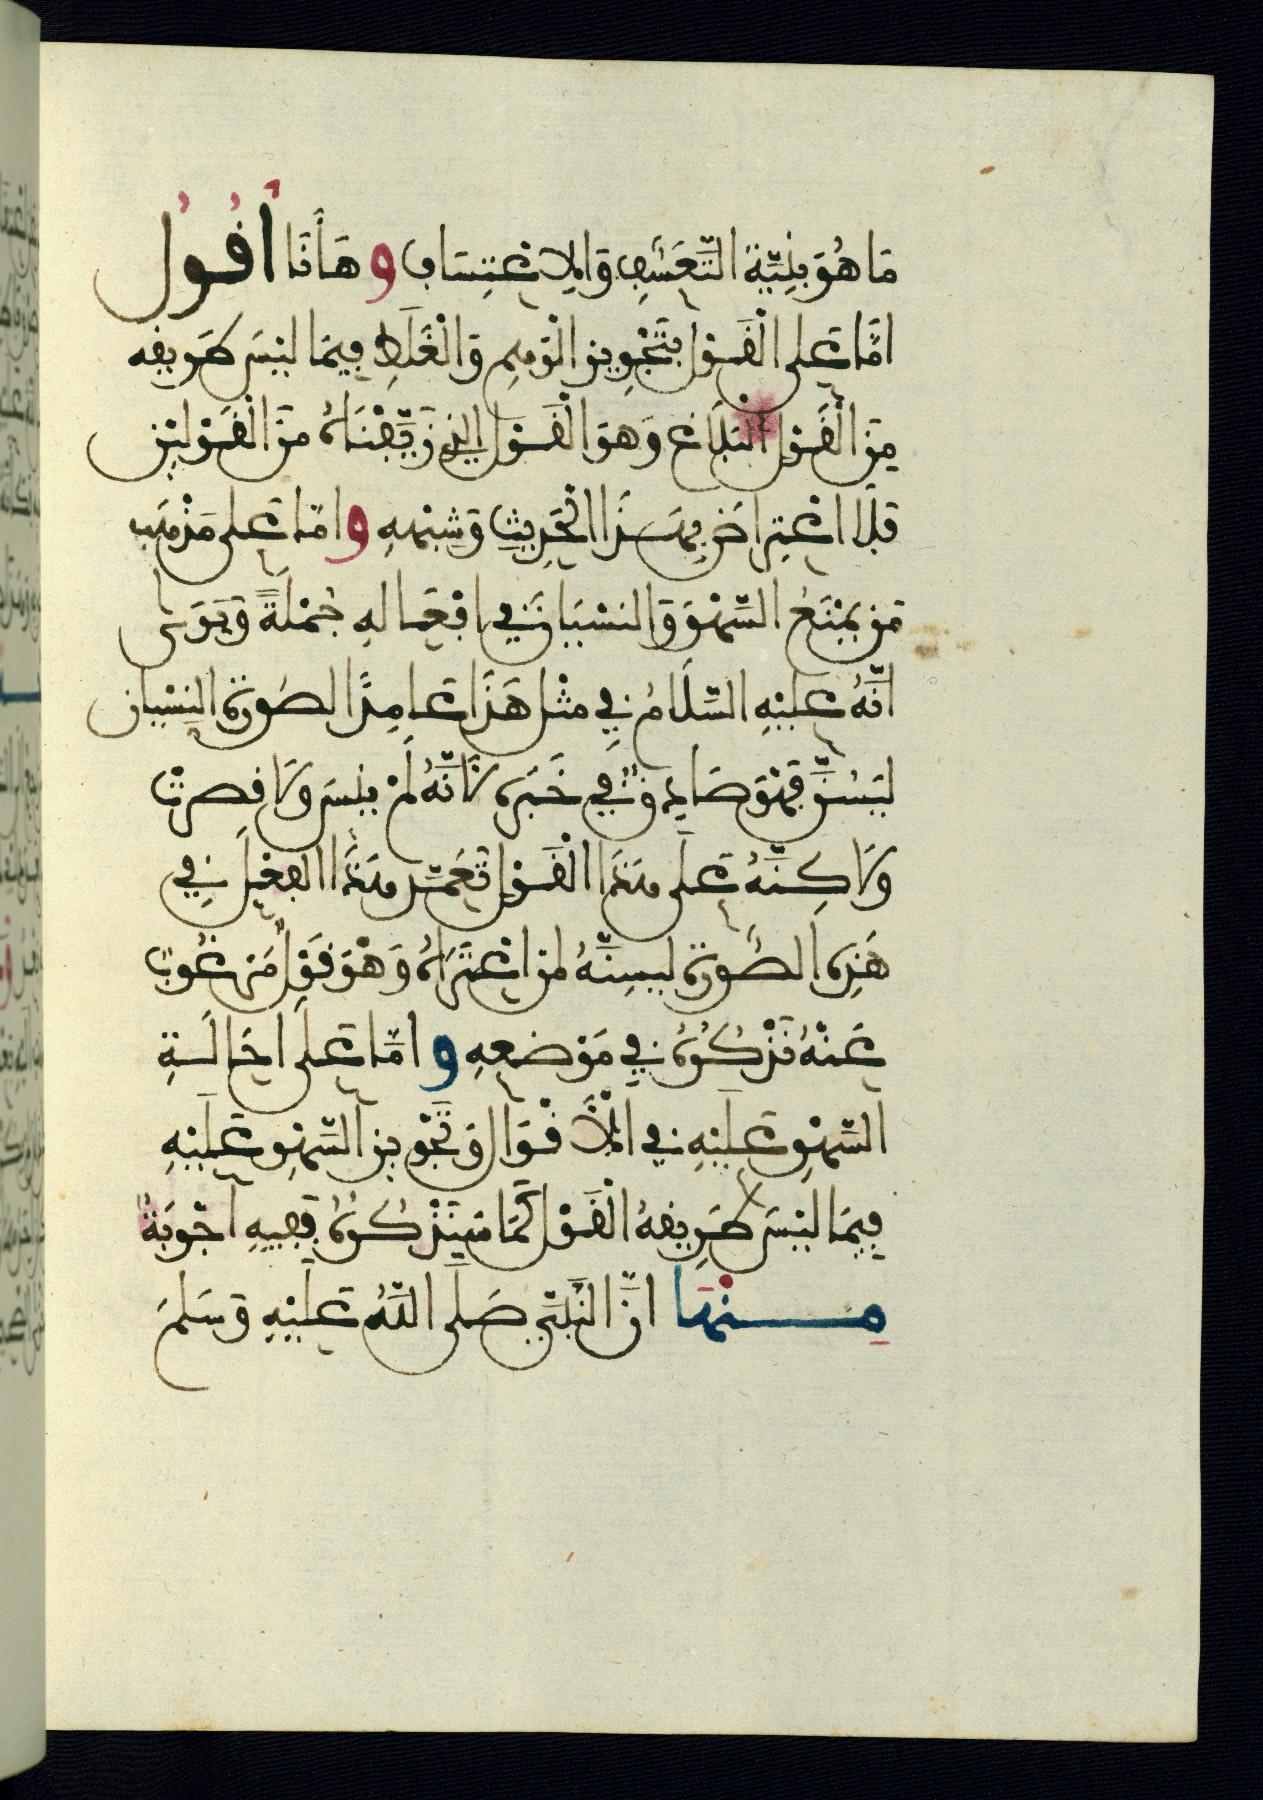 مَا هُوَ بِنِيَّةِ التَّعَسُّفِ وَالِاعْتِسَافِ وَهَا أَنَا أَقُولُ
امَّا عَلى الْقَوْلِ بِتَجْوِيزِ الْوَهِمِ وَالْغَلَطِ فِيمَا لَيْسَ طَرِيقُه
مِنَ الْقَوْلِ الْبَلَاغَ وَهوَ الْقَوْلُ الذِي زَيَّفْنَاهُ مِنَ الْقَوْلَيْنِ
فَلَا اعْتِرَاضَ بِهَذَا الْحَدِيثِ وَشِبْهِهِ وَامَّا عَلى مَذْهَبِ
مَنْ يَمْنَعُ السَّهْوَ وَالنِّسْيَانَ فِي افْعَالِهِ جُمْلَةً وَيَرَى
انَّهُ عَلَيْهِ السَّلَامُ فِي مثْلِ هَذَا عَامِدٌ الصُورَةِ النِسْيَانِ
لِيَسُنَّ فَهْوَ صَادِقٌ فِي خَبَرِهِ لَانَّهُ لَمْ يَنْسَ وَلَا قصِرَتْ
وَلَاكِنَّهُ عَلَى هَذَا الْقَوْلِ تَعَمَّدَ هَذَا الفِعْلَ فِي
هَذِهِ الصُّورَةِ لِيَسِنَّهُ لِمَنِ اعْتَرَاهُ وَهْوَ قَوْلٌ مَرْغُوبٌ
عَنْهُ نَذْكُرُهُ فِي مَوْضعِهِ وَامَّا عَلَى احَالَةِ
السَّهْوِ عَلَيْهِ فِي الْأَقْوَالِ وَتَجْوِيزِ السَّهْوِ عَلَيْهِ
فِيمَا لَيْسَ طَرِيقُهُ الْقَوْلَ كَمَا سَنَذْكُرُهُ فَفِيهِ أَجْوِبَةٌ
مِنْهَا انَّ النَّبِيَّ صَلَى اللَّهُ عَلَيْهِ وَسَلمَ